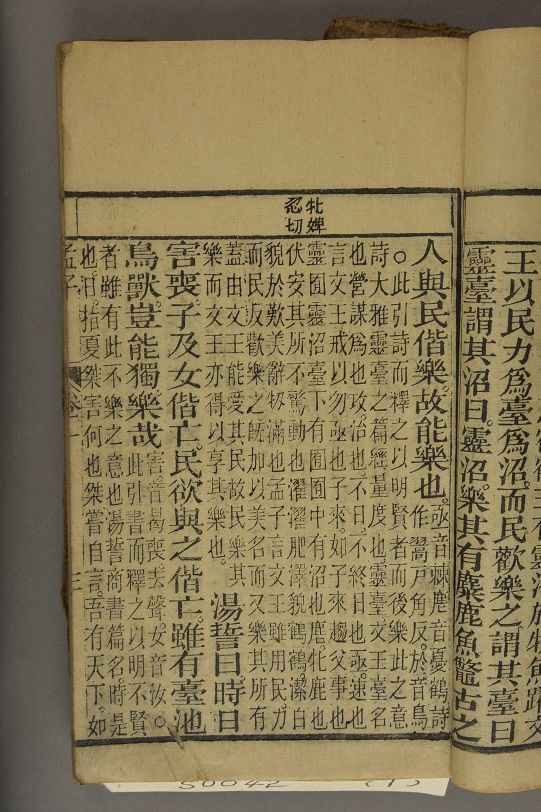 鶴鶴王在靈沼於牣魚躍文
王以民力爲臺爲沼。而民歡樂之。謂其臺曰
靈臺。謂其沼曰靈沼。樂其有麋鹿魚鼈。古之
牝婢
忍切
人與民偕樂。故能樂也。亟音棘麀音憂鶴詩
作翯戸角反。於音烏
○此引詩而釋之以明賢者而後樂此之意
詩大雅靈臺之篇。經量度也靈臺文王臺名
也營謀爲也攻治也不日不終日也亟速也
言文王戒以勿亟也子來。如子來趨父事也
靈囿靈沼。臺下有囿囿中有沼也麀牝鹿也
伏安其所不驚動也濯濯肥澤貌鶴鶴潔白
貌於歎美辭牣滿也孟子言文王雖用民力
而民反歡樂之旣加以美名而又樂其所有
蓋由文王能愛其民故民樂其
樂而文王亦得以享其樂也。
湯誓曰。時日
害喪。子及女偕亡。民欲與之偕亡。雖有臺池
鳥獸。豈能獨樂哉。害音曷喪去聲女音汝。○
此引書而釋之以明不賢
者雖有此不樂之意也湯誓商書篇名時是
也日。指夏桀害何也桀嘗自言。吾有天下。如
孟子 卷一 三
50042 (1)